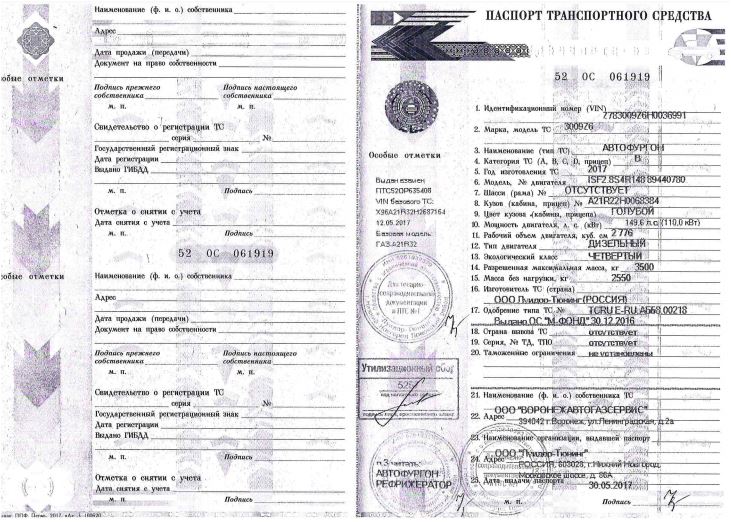 Наименование (ф. и. о.) собственника
Адрес
Дата продажи (передачи)
Документ на право собственности
Подпись прежнего собственника
Подпись настоящего собственника
м. п.
м. п.
Свидетельство о регистрации ТС
серия №
Государственный регистрационный знак
Дата регистрации
Выдано ГИБДД
м. п.
Подпись
Отметка о снятии с учета
Дата снятия с учета
м. п.
Подпись
собые отметки
52 ОС 061919
Наименование (ф. и. о.) собственника
Адрес
Дата продажи (передачи)
Документ на право собственности
Подпись прежнего собственника
Подпись настоящего собственника
м. п.
м. п.
Свидетельство о регистрации ТС
серия №
Государственный регистрационный знак
Дата регистрации
Выдано ГИБДД
м. п.
Подпись
Отметка о снятии с учета
Дата снятия с учета
м. п.
Подпись
собые отметки
ПАСПОРТ ТРАНСПОРТНОГО СРЕДСТВА
52 ОС 061919
Особые отметки
Выдан взамен
ПТС52ОР635408
VIN базового ТС:
X96A21R32H2687154
12.05.2017
Базовая модель:
ГАЗ-A21R32
Для товарно-
сопроводительной
документации
и ПТС №1
Утилизационный сбор
п.3 читать:
АВТОФУРГОН-
РЕФРИЖЕРАТОР
1. Идентификационный номер (VIN) Z783009Z6H0036991
2. Марка, модель ТС 3009Z6
3. Наименование (тип ТС) АВТОФУРГОН
4. Категория ТС (А, В, С, D, прицеп) В
5. Год изготовления ТС 2017
6. Модель, № двигателя ISF2.8S4R148 89440780
7. Шасси (рама) № ОТСУТСТВУЕТ
8. Кузов (кабина, прицеп) № A21R22H0063384
9. Цвет кузова (кабина, прицепа) ГОЛУБОЙ
10. Мощность двигателя, л. с. (кВт) 149,6 л.с. (110,0 кВт)
11. Рабочий объем двигателя, куб. см 2 776
12. Тип двигателя ДИЗЕЛЬНЫЙ
13. Экологический класс ЧЕТВЕРТЫЙ
14. Разрешенная максимальная масса, кг 3500
15. Масса без нагрузки, кг 2550
16. Изготовитель ТС (страна)
ООО Луидор-Тюнинг (РОССИЯ)
17. Одобрение типа ТС № ТС RU E-RU.АБ58.00218
Выдано ОС "М-ФОНД" 30.12.2016
18. Страна вывоза ТС отсутствует
19. Серия, № ТД, ТПО отсутствует
20. Таможенные ограничения не установлены
21. Наименование (ф. и. о.) собственника ТС
ООО "ВОРОНЕЖАВТОГАЗСЕРВИС"
22. Адрес 394042 г.Воронеж, ул.Ленинградская, д.2а
23. Наименование организации, выдавшей паспорт
ООО "Луидор-Тюнинг"
24. Адрес РОССИЯ, 603028, г.Нижний Новгород,
Московское шоссе, д. 86А
25. Дата выдачи паспорта 30.05.2017
м. п.
Подпись